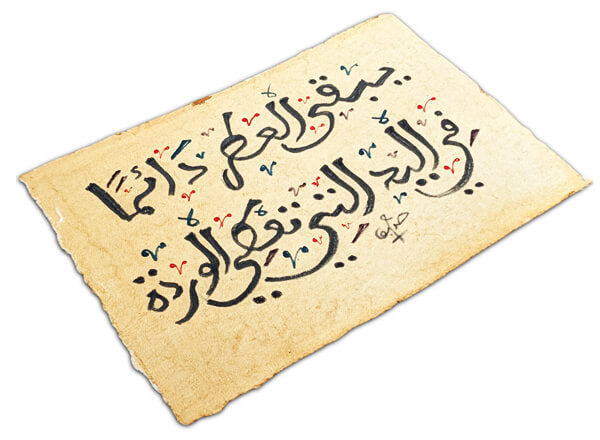 يبقى العطر دَائمًا
في اليد التي تعطي الوردة